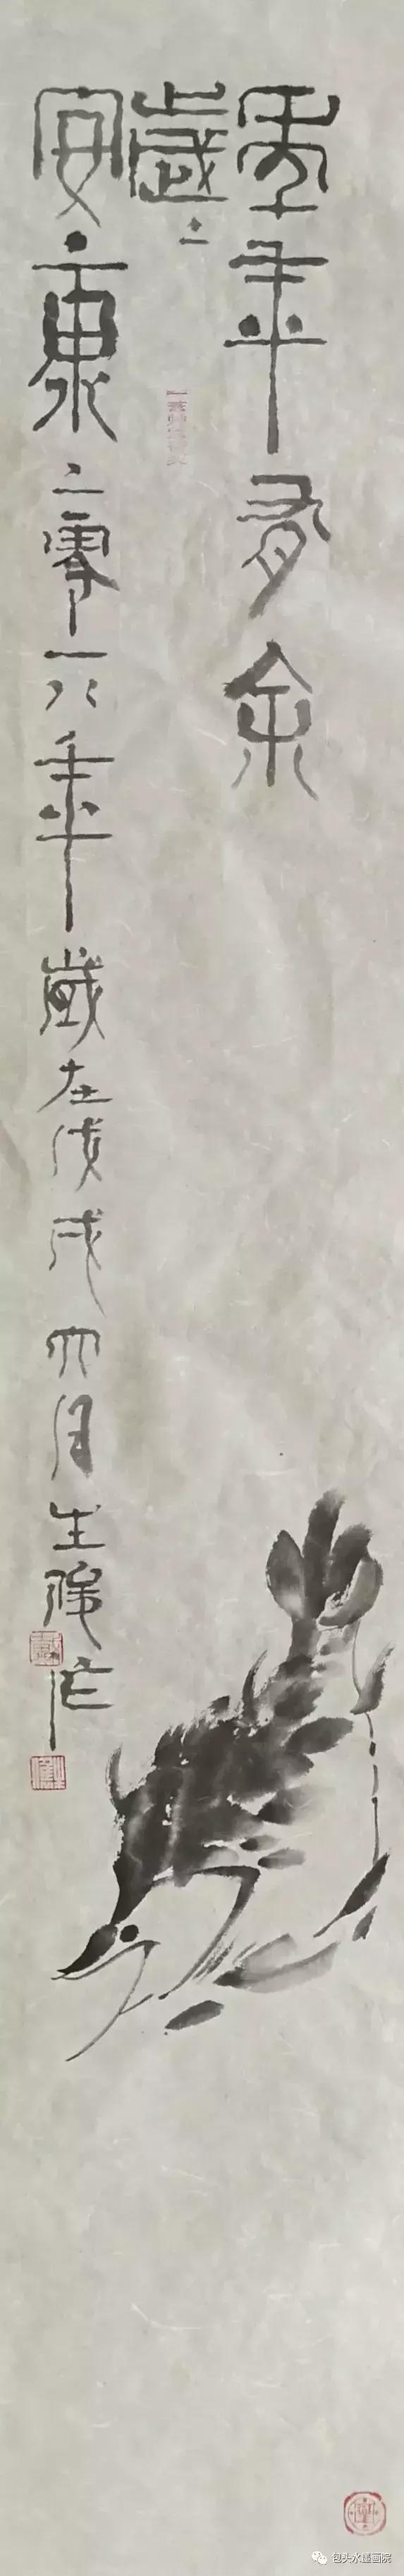 年年有余
歲〻
安康二零一八年歲在戊戌六月生俊作
包头水墨画院